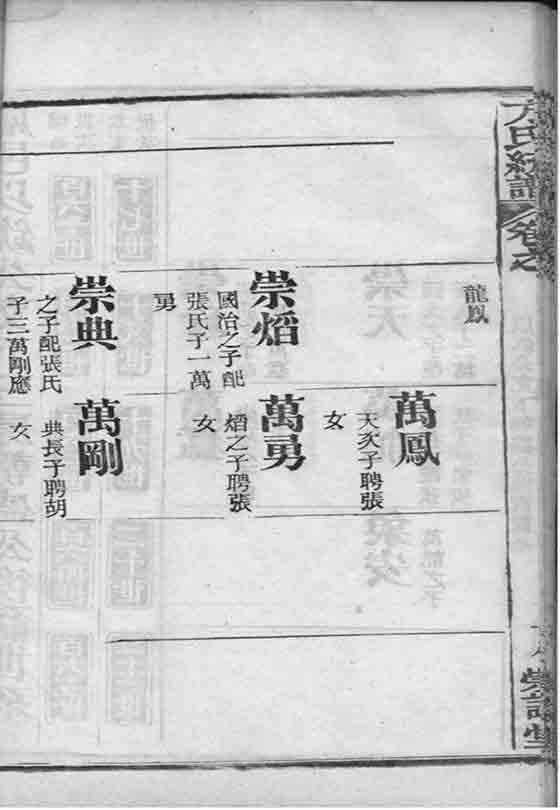 方氏統譜
卷之
龍鳳
萬鳳
天次子聘張
女
崇熖
國治之子配
張氏子一萬
勇
萬勇
熖之子聘張
女
崇典
之子配張氏
子三萬剛應
萬剛
典長子聘胡
女